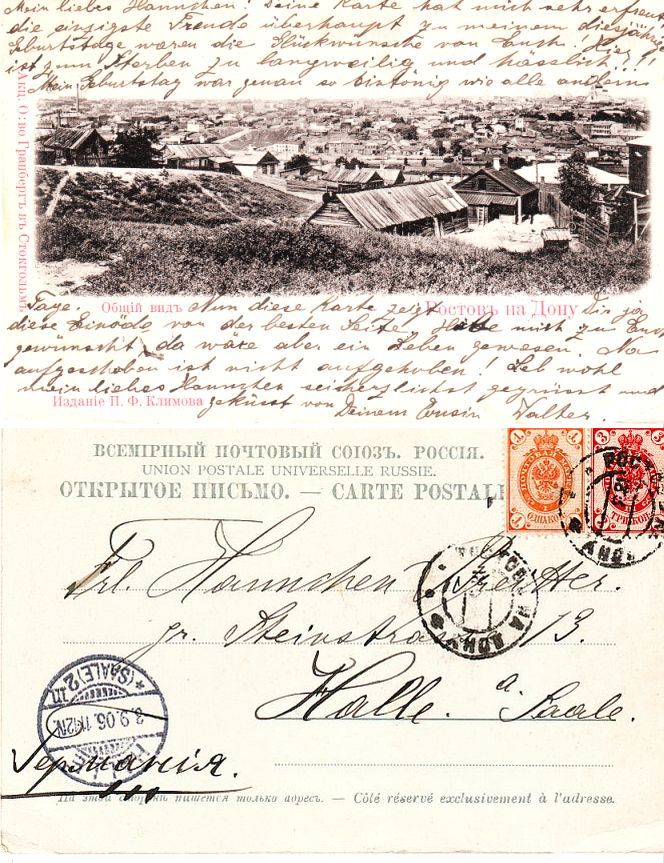 Mein liebes Hannchen! Deine Karte hat mich sehr erfreut
die einzigste Freude überhaupt zu meinem diesjährig
Geburtstage waren die Glückwünsche von Euch. Hier
ist zum Sterben zu langweilig und hässlich!?!
Mein Geburtstag war genau so eintönig wie alle andern
Акц. О:во Гранбергъ въ Стокгольмѣ
Tage. Общій видъ Nun diese Karte zeigt Ростовъ на Дону Dir ja
diese Einöde von der besten Seite. Hätte mich zu Euch
gewünscht, da wäre aber ein Leben gewesen. Na
aufgeschoben ist nicht aufgehoben! Leb wohl
mein liebes Hannchen sei herzlichst gegrüsst und
Изданіе П. Ф. Климова geküsst von Deinem Cousin Walter.
ВСЕМІРНЫЙ ПОЧТОВЫЙ СОЮЗЪ. РОССІЯ.
UNION POSTALE UNIVERSELLE RUSSIE.
ОТКРЫТОЕ ПИСЬМО. — CARTE POSTALE
1 1
ОДНА КОП.
1 1
3 3
ТРИ КОП.
РОСТОВЪ НА ДОНУ
Frl. Hannchen
gr. Steinstrasse 13.
Halle. a. Saale.
*(SAALE) 2
3.9.06. 11-12N.
Германія.
На этой сторонѣ пишется только адресъ. — Côté réservé exclusivement à l'adresse.